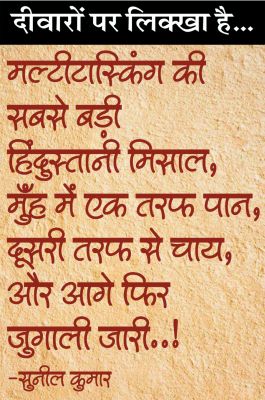 दीवारों पर लिक्खा है...
मल्टीटास्किंग की
सबसे बड़ी
हिंदुस्तानी मिसाल,
मुँह में एक तरफ पान,
दूसरी तरफ से चाय,
और आगे फिर
जुगाली जारी..!
-सुनील कुमार